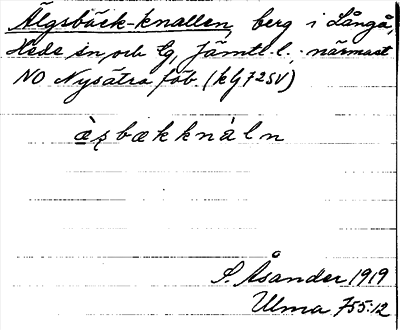 Älgsbäck-knallen, berg i Långå,
Hede sn och lg, Jämtl. l.; närmast
NO Nysätra fäb. (kg 72SV)
æ̀ʂbækknàln
S. Åsander 1919
Ulma 755:12